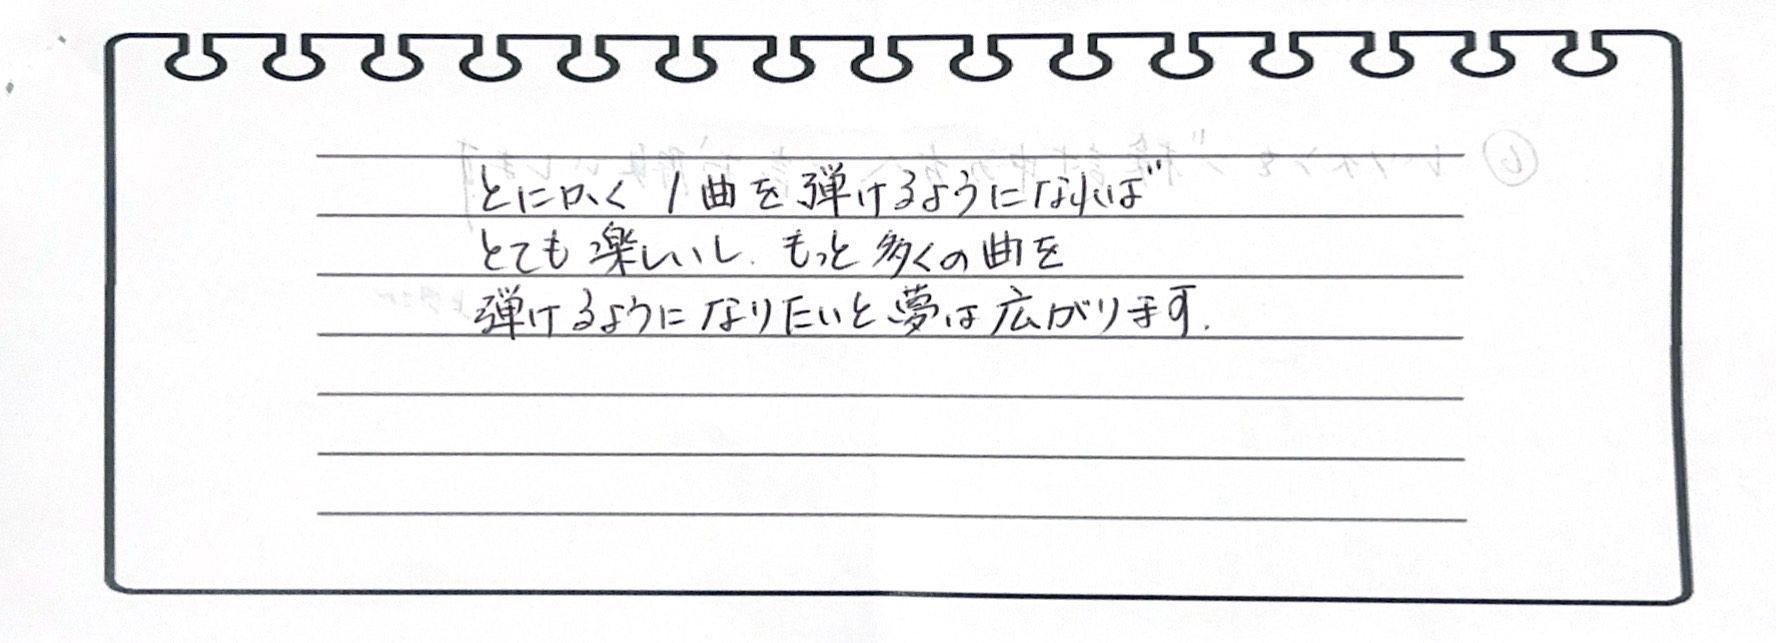 とにかく1曲を弾けるようになれば
とても楽しいし、もっと多くの曲を
弾けるようになりたいと夢は広がります.